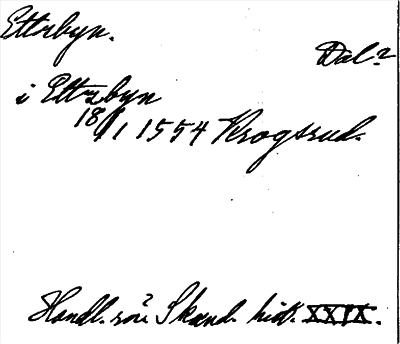 Ettrbyn.
Dal?
i Ettrbyn
18/1 1554 Krogsrud.
Handl. rör. Skand. hist. XXIX.